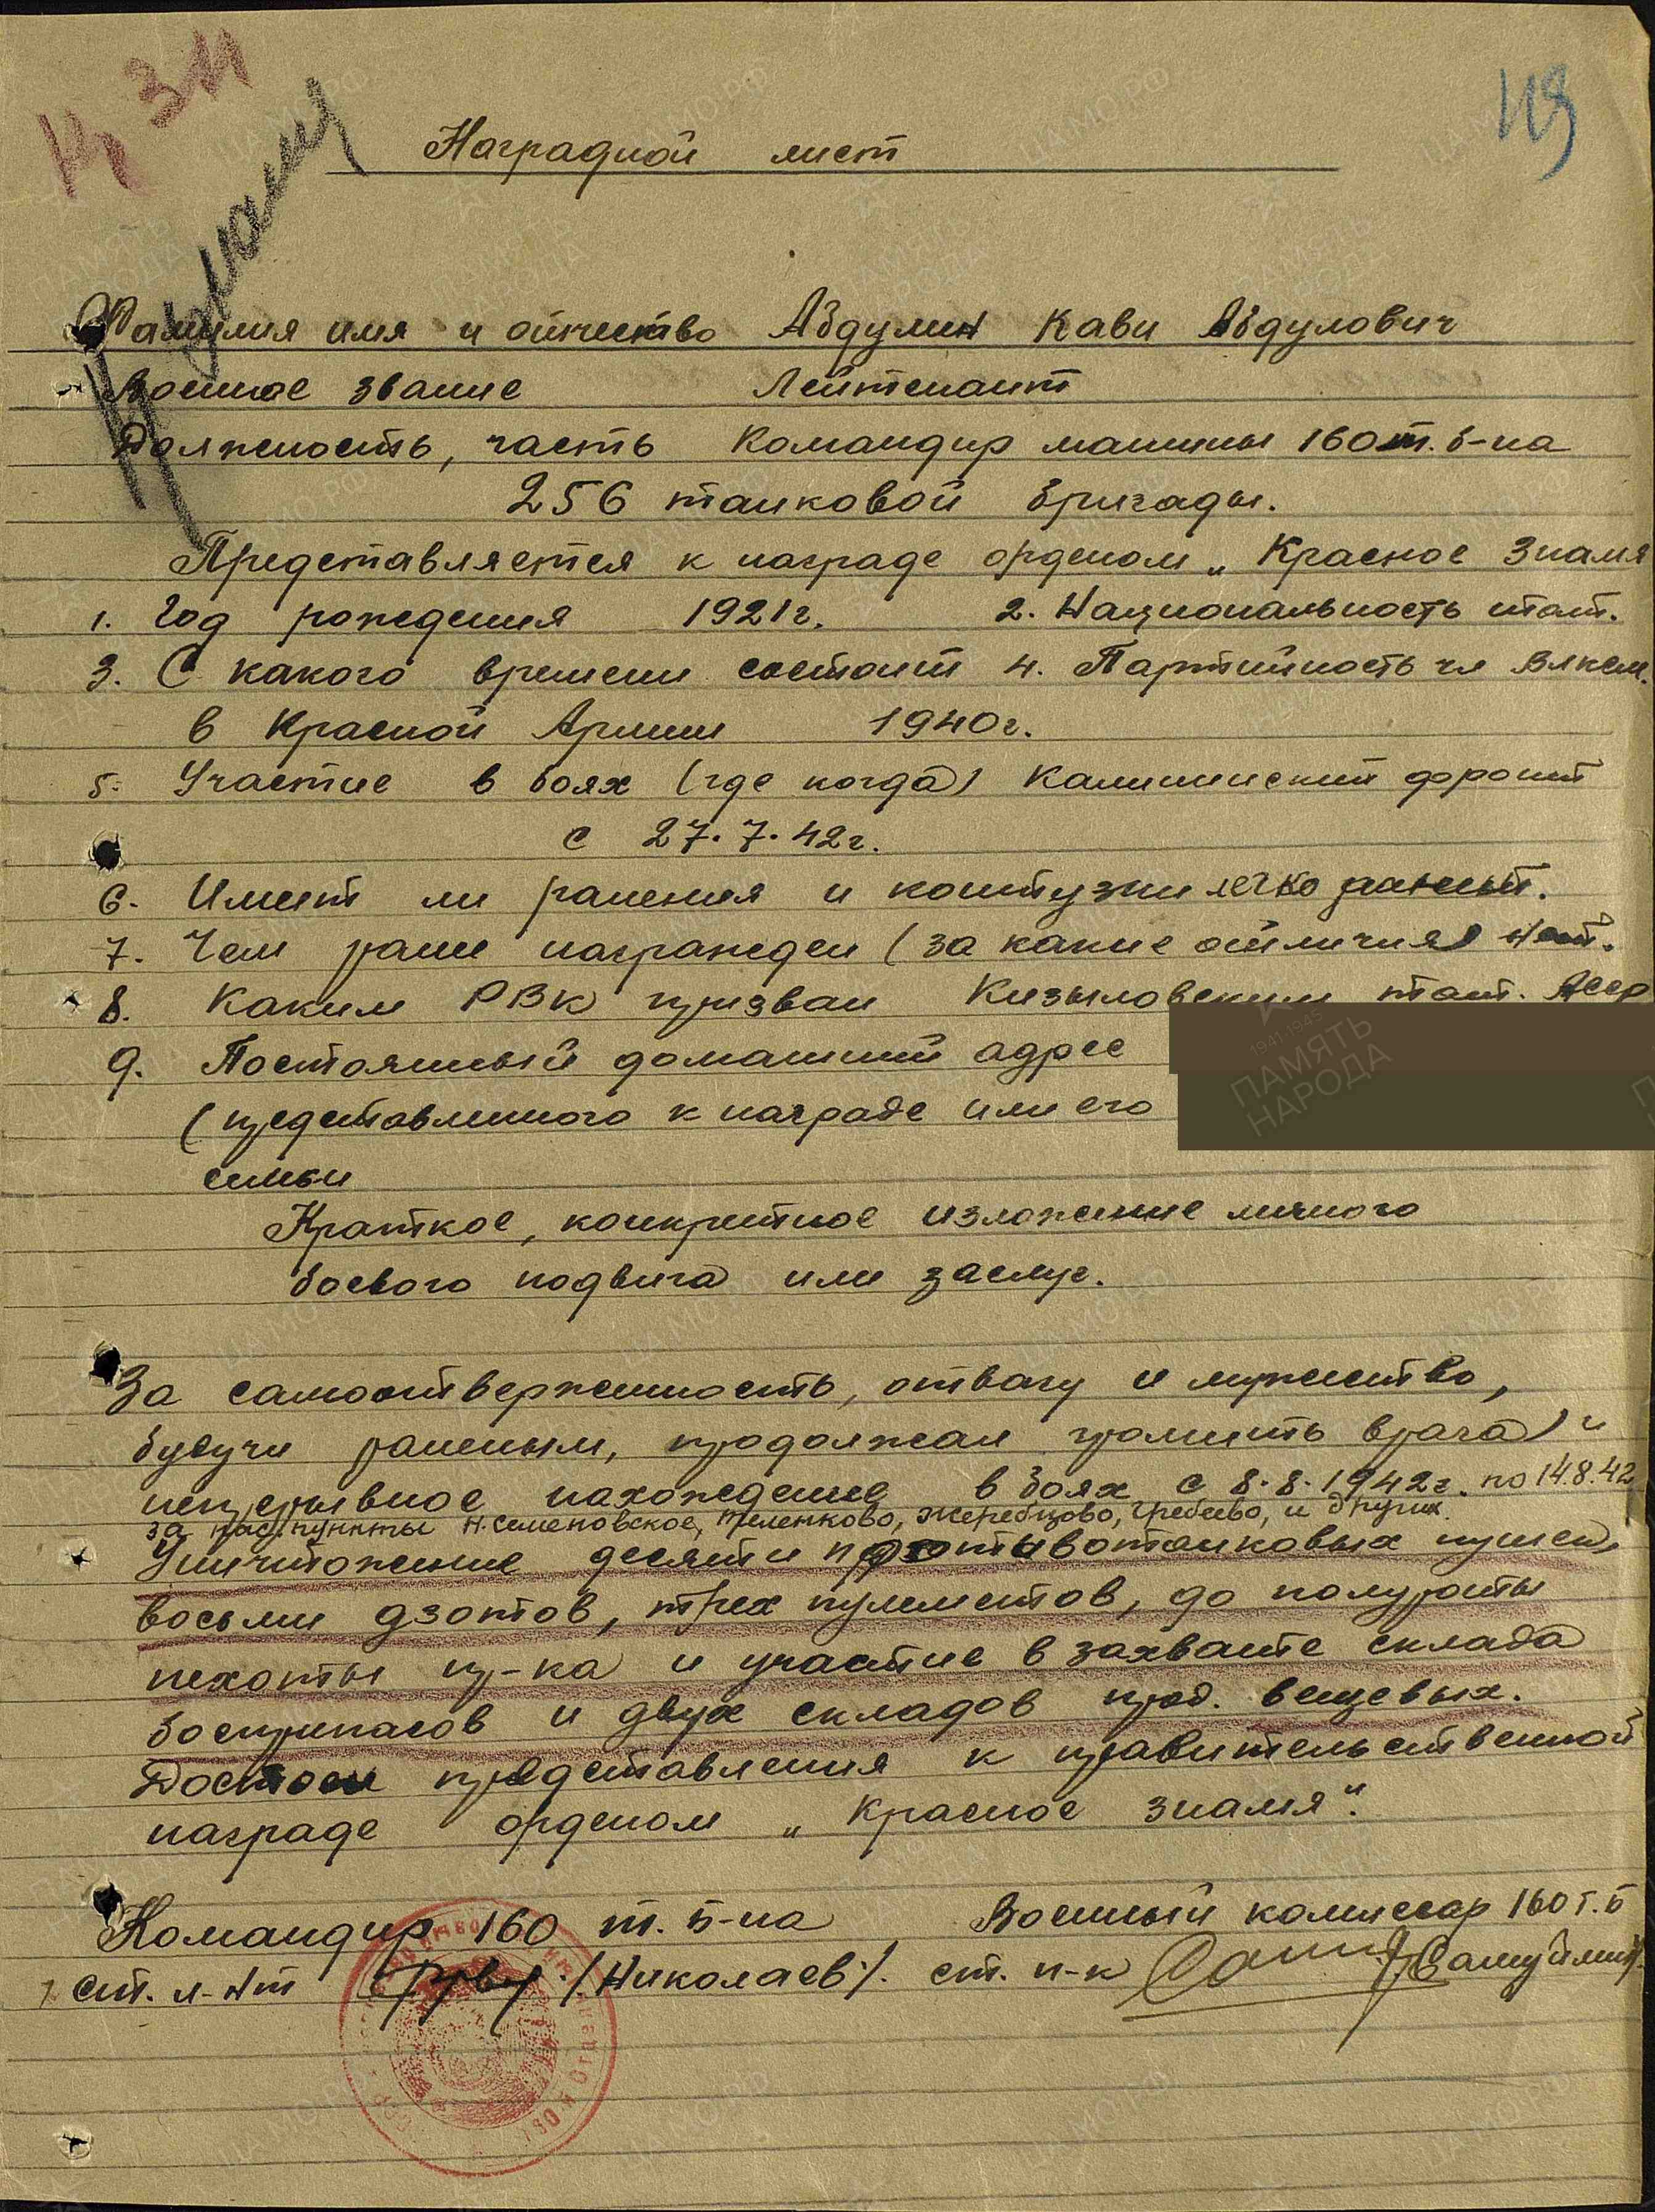 КЗН
119
Наградной лист
Фамилия имя и отчество Абдулин Кави Абдулович
Военное звание Лейтенант
Должность, часть Командир машины 160 т. б-на
256 танковой бригады.
Представляется к награде орденом „Красное Знамя
1. Год рождения 1921г. 2. Национальность тат.
3. С какого времени состоит 4. Партийность чл ВЛКСМ.
в Красной Армии 1940г.
5. Участие в боях (где когда) Калининский фронт
с 27.7.42г.
6. Имеет ли ранения и контузии легко ранен.
7. Чем ранее награжден (за какие отличия) Нет.
8. Каким РВК призван Кизыловским тат. АССР
9. Постоянный домашний адрес
(представленного к награде или его
семьи
Краткое, конкретное изложение личного
боевого подвига или заслуг.
За самоотверженность, отвагу и мужество,
будучи раненым, продолжал громить врага) и
непрерывное нахождение в боях с 8.8.1942г. по 14.8.42
за нас. пункты Н. Семеновское, Теленково, Жеребцово, Гребеево, и других.
Уничтожение десяти противотанковых пушек,
восьми дзотов, трех пулеметов, до полуроты
пехоты пр-ка и участие в захвате склада
боеприпасов и двух складов прод. вещевых.
Достоен представления к правительственной
награде орденом „Красное знамя".
Командир 160 т. б-на Военный комиссар 160 т. б
ст. л-нт /Николаев/. ст. п-к /Самуйлин/.